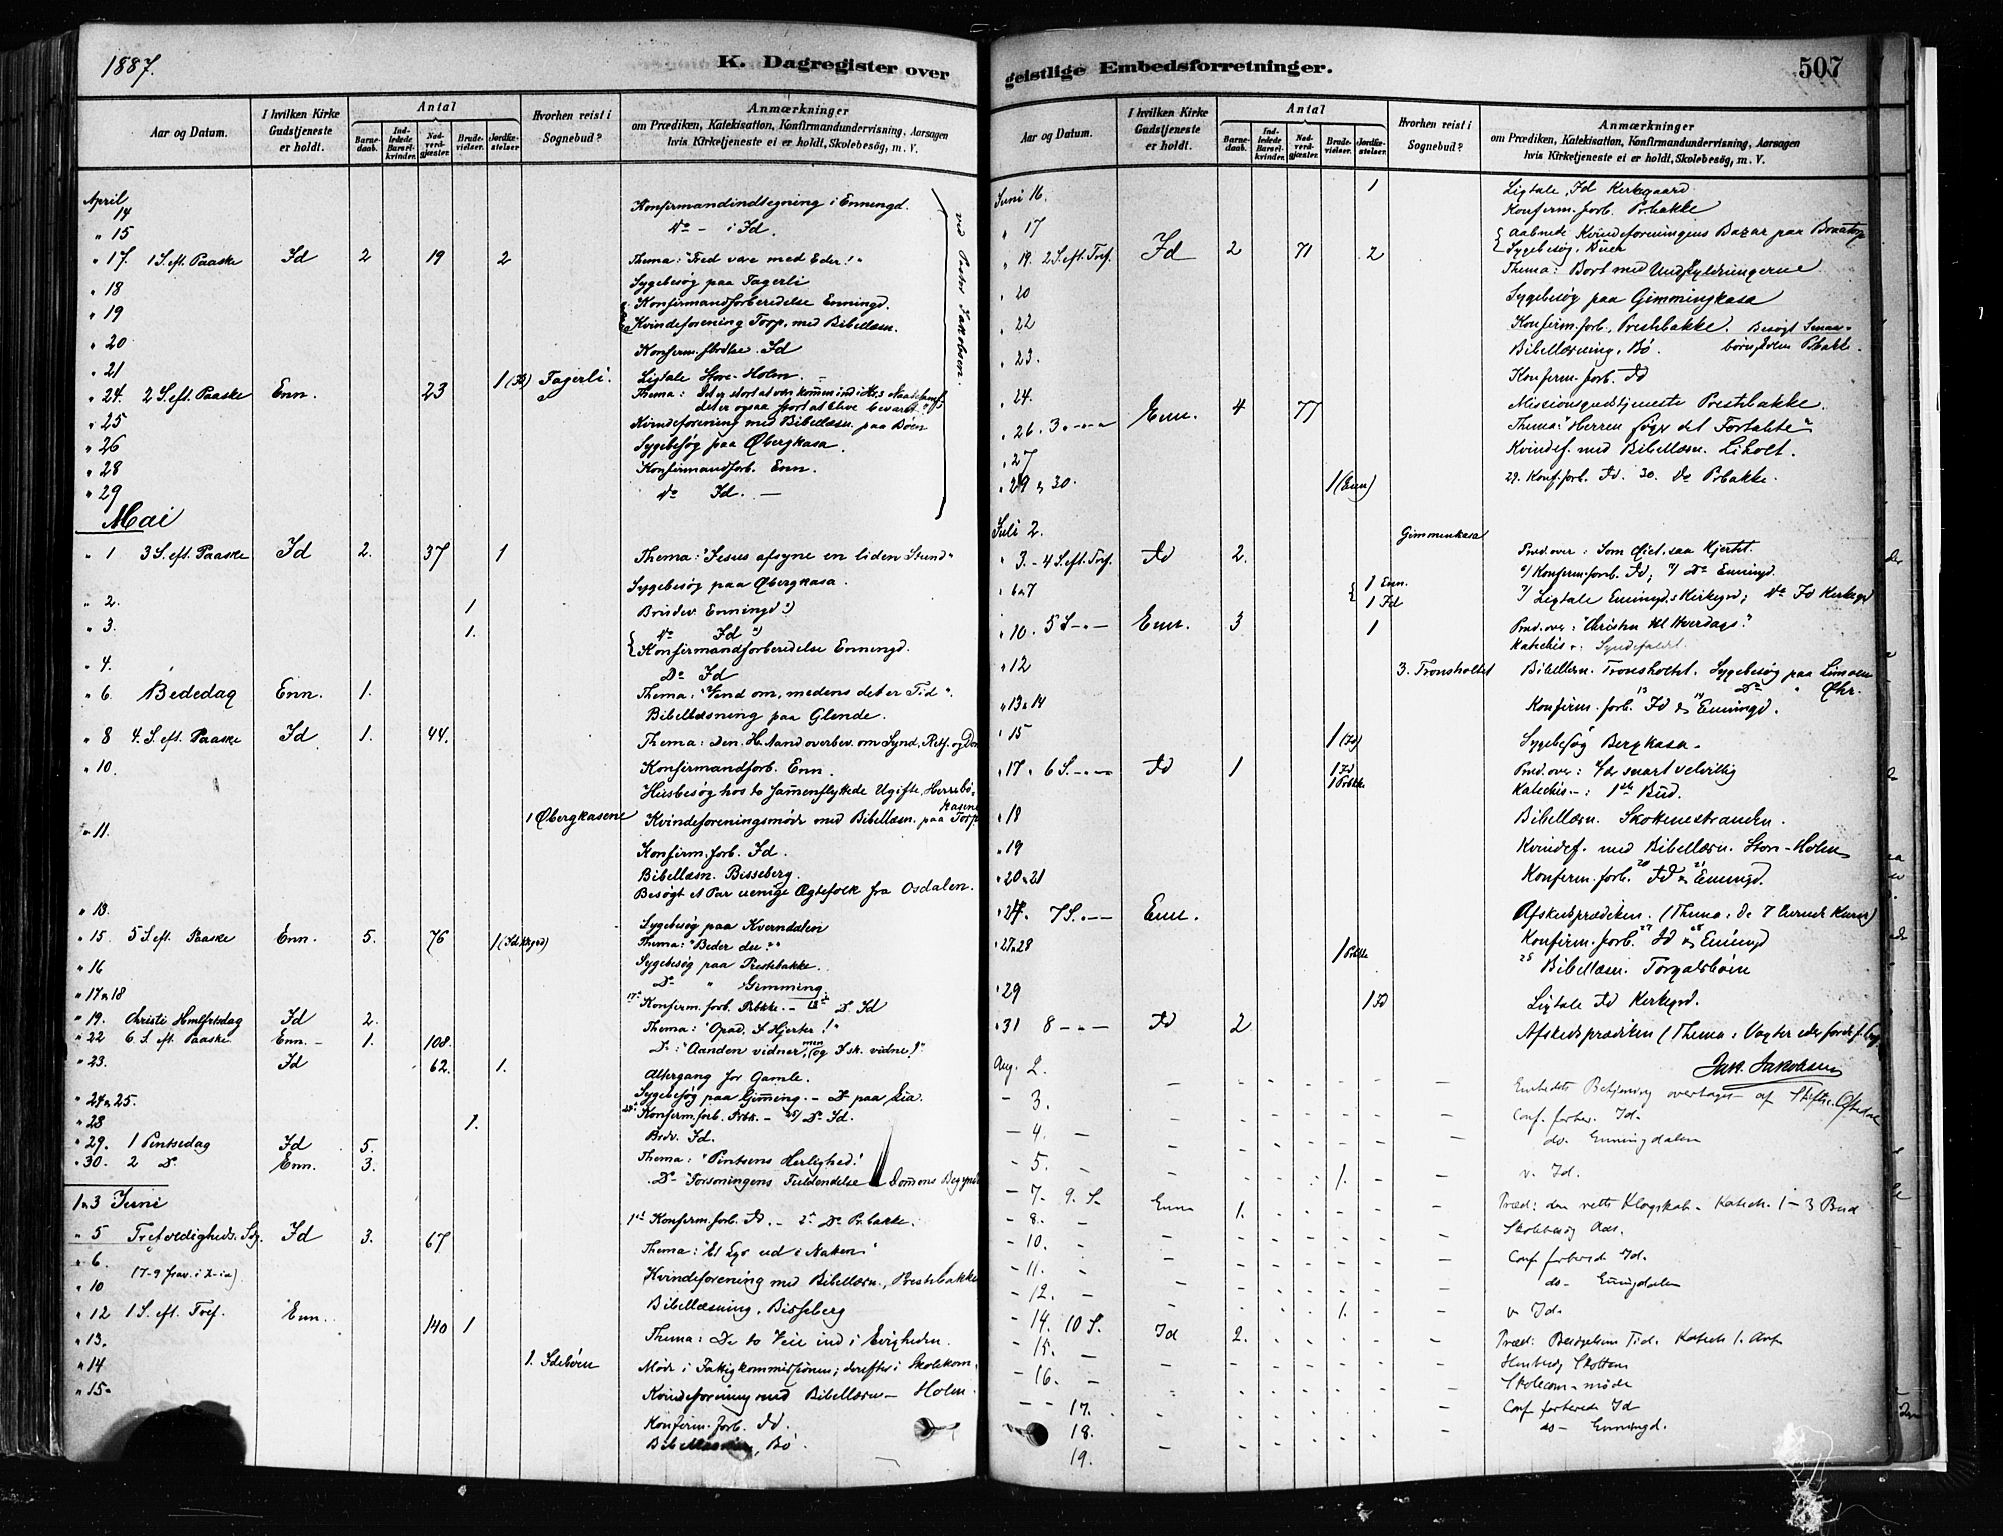 1887.
K. Dagregister over
Aar og Datum.
I hvilken Kirke Gudstjeneste er holdt.
Antal
Barnedaab.
Indledede Barselkvinder.
Nadverdgjæster.
Brudevielser.
Jordfæstelser.
Hvorhen reist i Sognebud?
Anmærkninger
om Prædiken, Katekisation, Konfirmandundervisning, Aarsagen
hvis Kirketjeneste ei er holdt, Skolebesøg, m. V.
April
14 Konfirmandindtegning i Enningd.
" 15 Do - i Id.
" 17 1 S. eft. Paaske Id 2 19 2 Thema: "Fred være med Eder!"
" 18 Sygebesøg paa Fagerli
" 19 Konfirmandforberedelse Enningd.
Kvindeforening Torp, med Bibellæsn.
" 20
Konfirm. Id
" 21
Ligtale Store-Holm.
" 24. 2 S. eft. Paaske Enn. 23 1 (Id) Fagerli. Thema:
det er ogsaa stort at blive bevaret
" 25 Kvindeforening med Bibellæsn. paa Bøen
" 26 Sygebesøg paa Øbergkasa.
" 28 Konfirmandforb. Enn.
" 29 Do Id. -
ved Pastor Jakobsen.
Mai
" 1 3 S. eft. Paaske Id 2. 37 1 Thema: "Jesus afsyne en liden Stund"
Sygebesøg paa Øbergkasa.
" 2. 1 Brudev. Enningd
" 3. 1. Do Id
Konfirmandforberedelse Enningd.
" 4. Do Id
" 6. Bededag Enn. 1. Thema: "Vend om, medens det er Tid".
Bibellæsning paa Glende.
" 8 4. S. eft. Paaske Id 1. 44. Thema: Den H. Aand overbev. om Synd, Retf. og Dom
" 10. Konfirmandforb. Enn.
Husbesøg hos to sammenflyttede Ugifte, Herrebøkasene
1 Øbergkasene Kvindeforeningsmøde med Bibellæsn. paa Torp
" 11.
Konfirm. forb. Id.
Bibellæsn. Bisseberg.
Besøgt et Par uenige Ægtefolk fra Osdalen.
" 13.
Sygebesøg paa Kverndalen
" 15. 5 S. eft. Paaske Enn. 5. 76 1 (Id Krgd) Thema: "Beder du?"
" 16 Sygebesøg paa Prestebakke.
" 17 & 18 Do " Gimming.
Konfirm. forb. Prbkke. - Do Id
" 19. Christi Hmlfrtsdag Id 2. Thema: "Opad, I Hjerter!"
" 22 6. S. eft. Paaske Enn. - 1. 108. Do: "Aanden vidner, men og I sk. vidne!"
" 23. Id 62. 1. Altergang for Gamle.
" 24 & 25. Sygebesøg paa Gimming. - Do paa Lia.
Konfirm. forb. Prbk. - 25/ Do Id.
" 28 1. Brdv. Id.
" 29. 1 Pintsedag Id 5. Thema: "Pintsens Herlighed!
" 30. 2 Do Enn. 3. Do "Forsoningens Fuldendelse Dommens Begyndelse
1 & 3 Juni Konfirm. forb. Id. - Do Pr. bakke.
" 5 Trefoldigheds. Sdg. Id 3. 67 Thema: "Et Lys ud i Natten"
" 6. Kvindeforening med Bibellæsn., Prestebakke
(7-9 frav.
" 10 Bibellæsning, Bisseberg
" 12 1 S. eft. Tref. Enn. 140 1 Thema: De to Veie ind i Evigheden.
" 13.
" 14 1. Idebøen Møde i Fattigkommissionen; derefter i Skolekom.
" 15. Kvindeforening med Bibellæsn - Holm.
Konfirm. forb. Id.
Bibellæsning, Bø.
geistlige Embedsforretninger.
507
Aar og Datum.
I hvilken Kirke Gudstjeneste er holdt.
Antal
Barnedaab.
Indledede Barselkvinder.
Nadverdgjæster.
Brudevielser.
Jordfæstelser.
Hvorhen reist i Sognebud?
Anmærkninger
om Prædiken, Katekisation, Konfirmandundervisning, Aarsagen
hvis Kirketjeneste ei er holdt, Skolebesøg, m. V.
Juni 16. 1 Ligtale, Id Kerkegaard.
Konfirm. forb. Pr.bakke
" 17 Aabnede Kvindeforeningens Bazar paa Braatorp
Sygebesøg, Buen
" 19. 2 S. eft. Tref. Id 2 71 2 Thema: Bort med Undskyldningerne
" 20 Sygebesøg paa Gimmingkasa
" 22 Konfirm. forb., Prestebakke. Besøgt Smaabørnskolen P.bakk.
" 23. Bibellæsning, Bø.
Konfirm. forb. Id
" 24. Missionsgudstjeneste Prestebakke.
" 26. 3 - " - " Enn. 4 77 Thema: "Herren søger det Fortabte"
" 27 Kvindef. med Bibellæsn. Liholt.
" 29 & 30. 1 (Enn) 29. Konf. forb. Id. 30. Do Prbakke.
Juli 2. Gimmenkasa
" 3. - 4 S. eft. Tref. Id 2. Præd. over: Som Øiet, saa Hjertet.
6/ Konfirm. forb. Id; 7/ Do Enningd.
" 6 & 7 1 Enn. 1 Id 7/ Ligtale Enningds Kirkegrd; Do Id Kirkegrd
" 10. 5 S - " - Enn. 3 1 Præd. over: "Christen til Hverdags."
Katechis. Syndefaldet.
" 12 3. Tronsholtet Bibellæsn. Tronsholtet. Sygebesøg paa
" 13 & 14 Konfirm. forb. 13 Id & 14 Enningd.
" 15 1 (Id) Sygebesøg Bergkasa.
" 17. 6 S. - " - Id 1 1 Id 1 Prbkke Præd. over: Vær snart velvillig
Katechis. -: 1ste Bud.
" 18 Bibellæsn. Skottenestranden.
" 19 Kvindef. med Bibellæsn. Store-Holm
" 20 & 21 Konfirm. forb. 20 Id & 21 Enningd.
" 24. 7 S. - " - Enn. Afskedsprædiken. (Thema: De 7
" 27 & 28 1 Prbkke Konfirm. forb. 27 Id & 28 Enningd
Bibellæsn. Torgalsbøen
" 29 1 Id Ligtale Id Kerkegrd.
" 31 8 - " - Id 2 Afskedsprædiken (Thema: Vogter eder for
Jak. Jakobsen
Aug. 2. Embedets Betjening overtages af Stiftsc. Øftedal
- 3. Conf. forber. Id.
- 4. do. Enningdalen
- 5. 1. v. Id.
- 7. 9. S. Enn 1. Præd: den rette Klogskab - Katech. 1-3 Bud
- 8. Skolebesøg
- 10. Conf forberede Id.
- 11. do - Enningdalen
- 12. 1. v. Id.
- 14. 10 S. Id 2. Præd: Besøgelsens Tid. Katech 1. Art
- 15. Husbesøg Skotten
- 16. Skolecom-møde
- 17. Conf forberede Id
18. do - Enningd.
19.